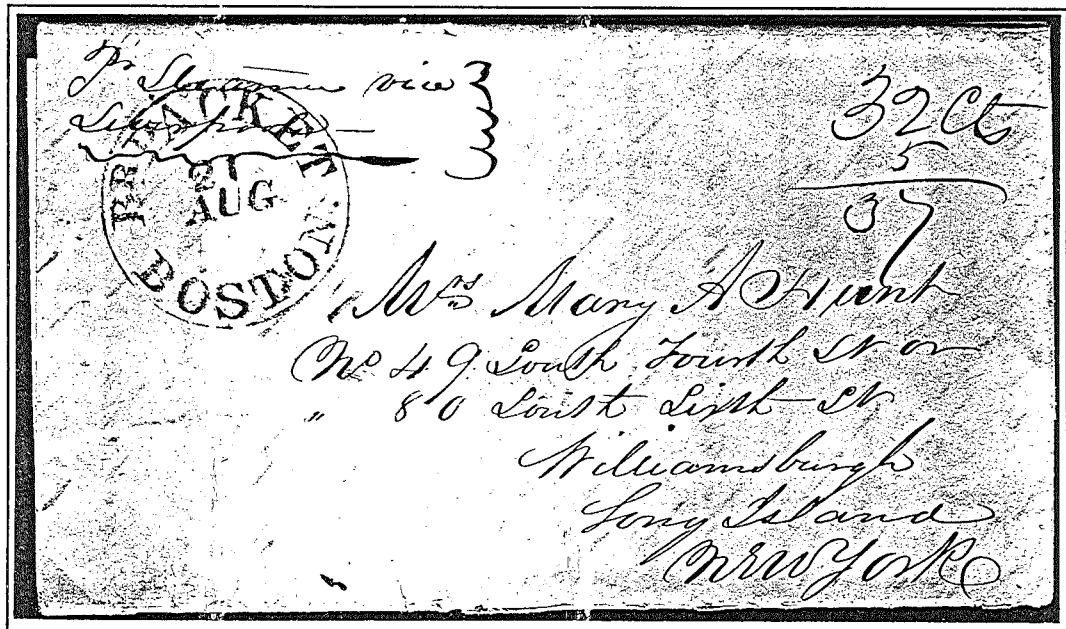 Pr Steamer via
Liverpool
BR. PACKET
21
AUG
BOSTON.
32 Cts
5
37
Mrs Mary A Hunt
No 49 South Fourth St or
" 80 South Sixth St
Williamsburgh
Long Island
New York